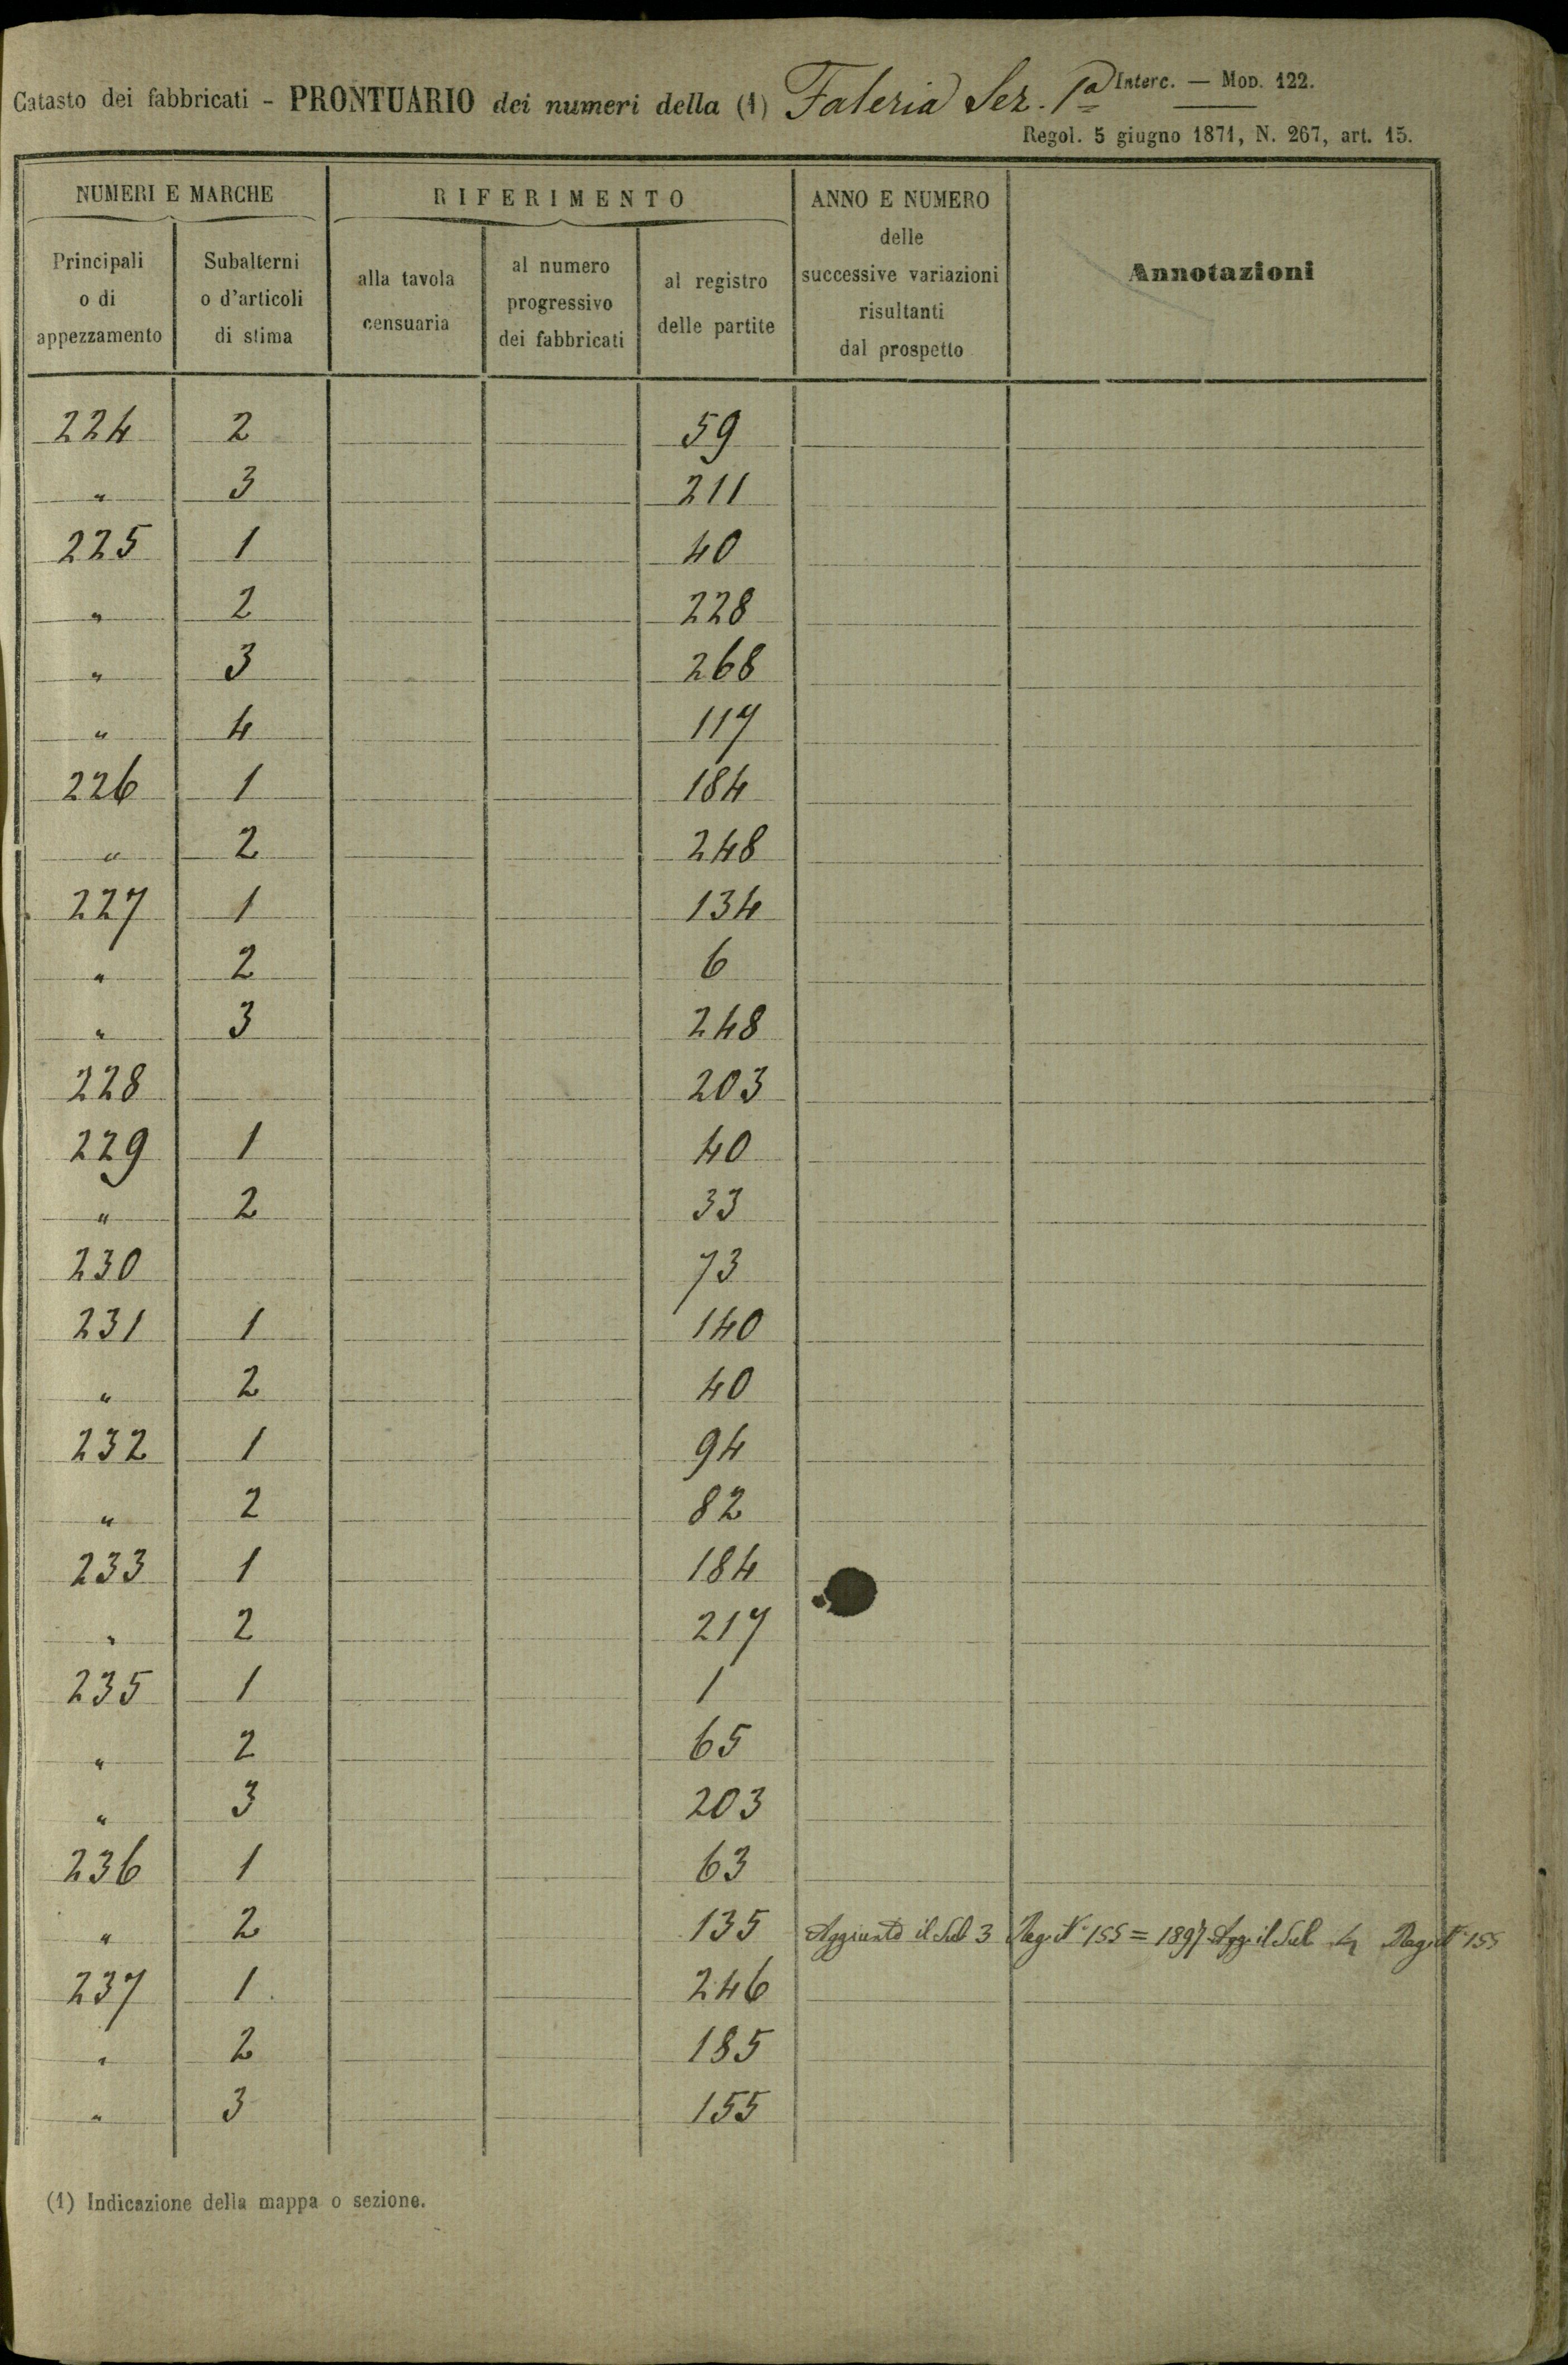 Catasto dei fabbricati - PRONTUARIO dei numeri della (1) Faleria Sez. 1ª Interc. — Mod. 122.
Regol. 5 giugno 1871, N. 267, art. 15.
NUMERI E MARCHE RIFERIMENTO ANNO E NUMERO delle successive variazioni risultanti dal prospetto Annotazioni
Principali o di appezzamento Subalterni o d'articoli di stima alla tavola censuaria al numero progressivo dei fabbricati al registro delle partite
224 2 59
" 3 211
225 1 40
" 2 228
" 3 268
" 4 117
226 1 184
" 2 248
227 1 134
" 2 6
" 3 248
228 203
229 1 40
" 2 33
230 73
231 1 140
" 2 40
232 1 94
" 2 82
233 1 184
" 2 217
235 1 1
" 2 65
" 3 203
236 1 63
" 2 135 Aggiunto il Sub 3 Reg. N° 155 = 1897 Agg. il Sub 4 Reg. N° 155
237 1 246
" 2 185
" 3 155
(1) Indicazione della mappa o sezione.